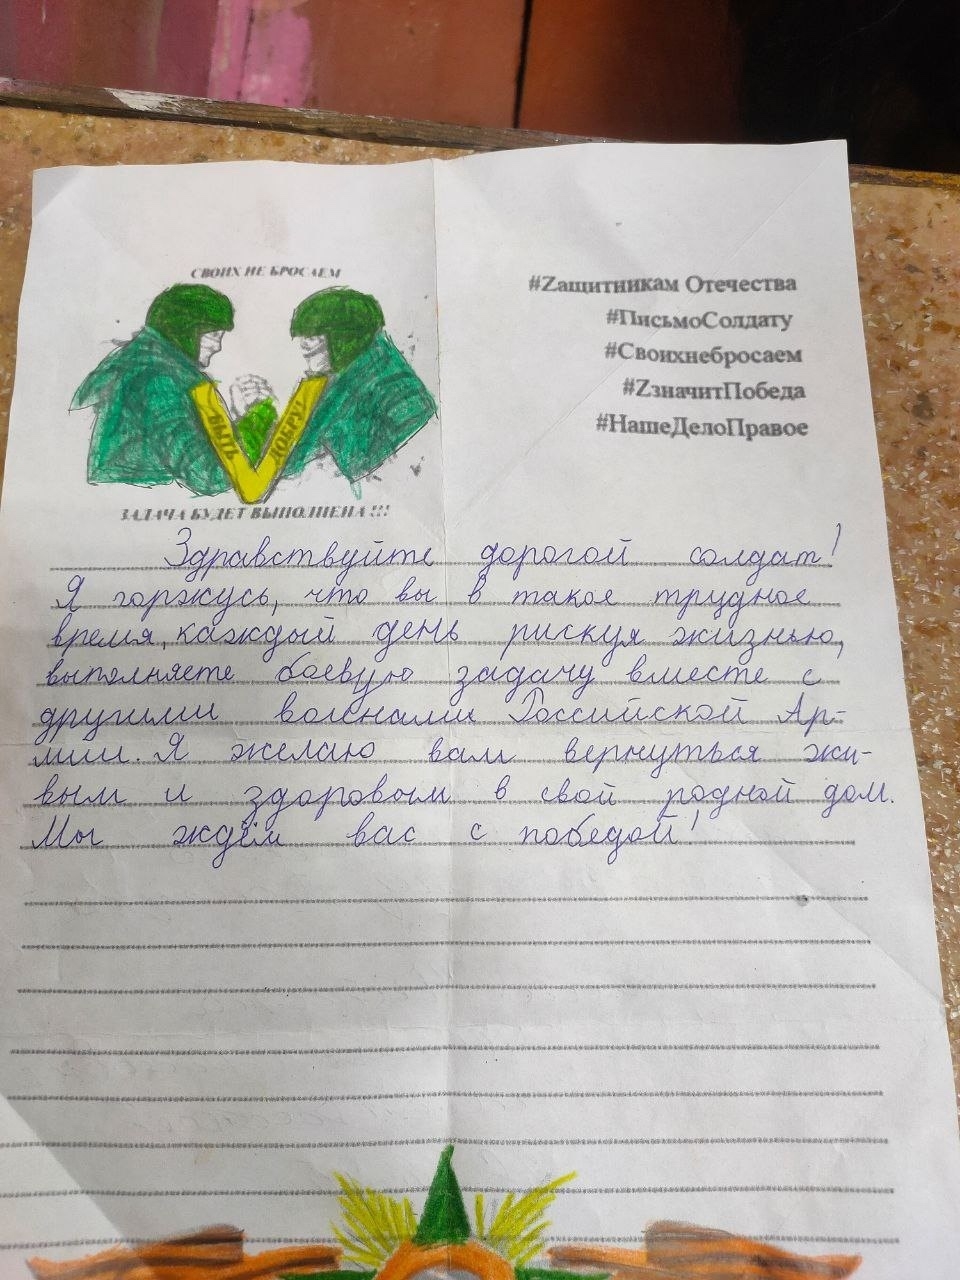 СВОИХ НЕ БРОСАЕМ
БЫТЬ ДОБРУ!
ЗАДАЧА БУДЕТ ВЫПОЛНЕНА !!!
#Zащитникам Отечества
#ПисьмоСолдату
#Своихнебросаем
#ZначитПобеда
#НашеДелоПравое
Здравствуйте дорогой солдат!
Я горжусь, что вы в такое трудное
время, каждый день рискуя жизнью,
выполняете боевую задачу вместе с
другими воинами Российской Ар-
мии. Я желаю вам вернуться жи-
вым и здоровым в свой родной дом.
Мы ждём вас с победой!